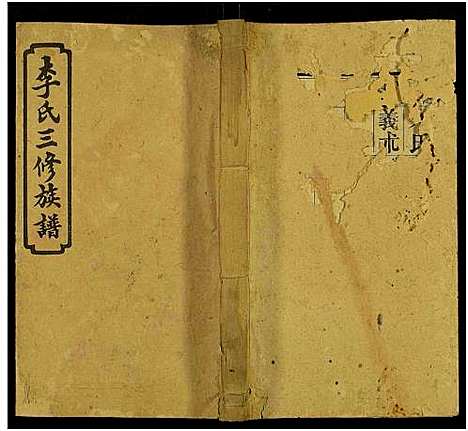 李氏三修族譜
義
氏